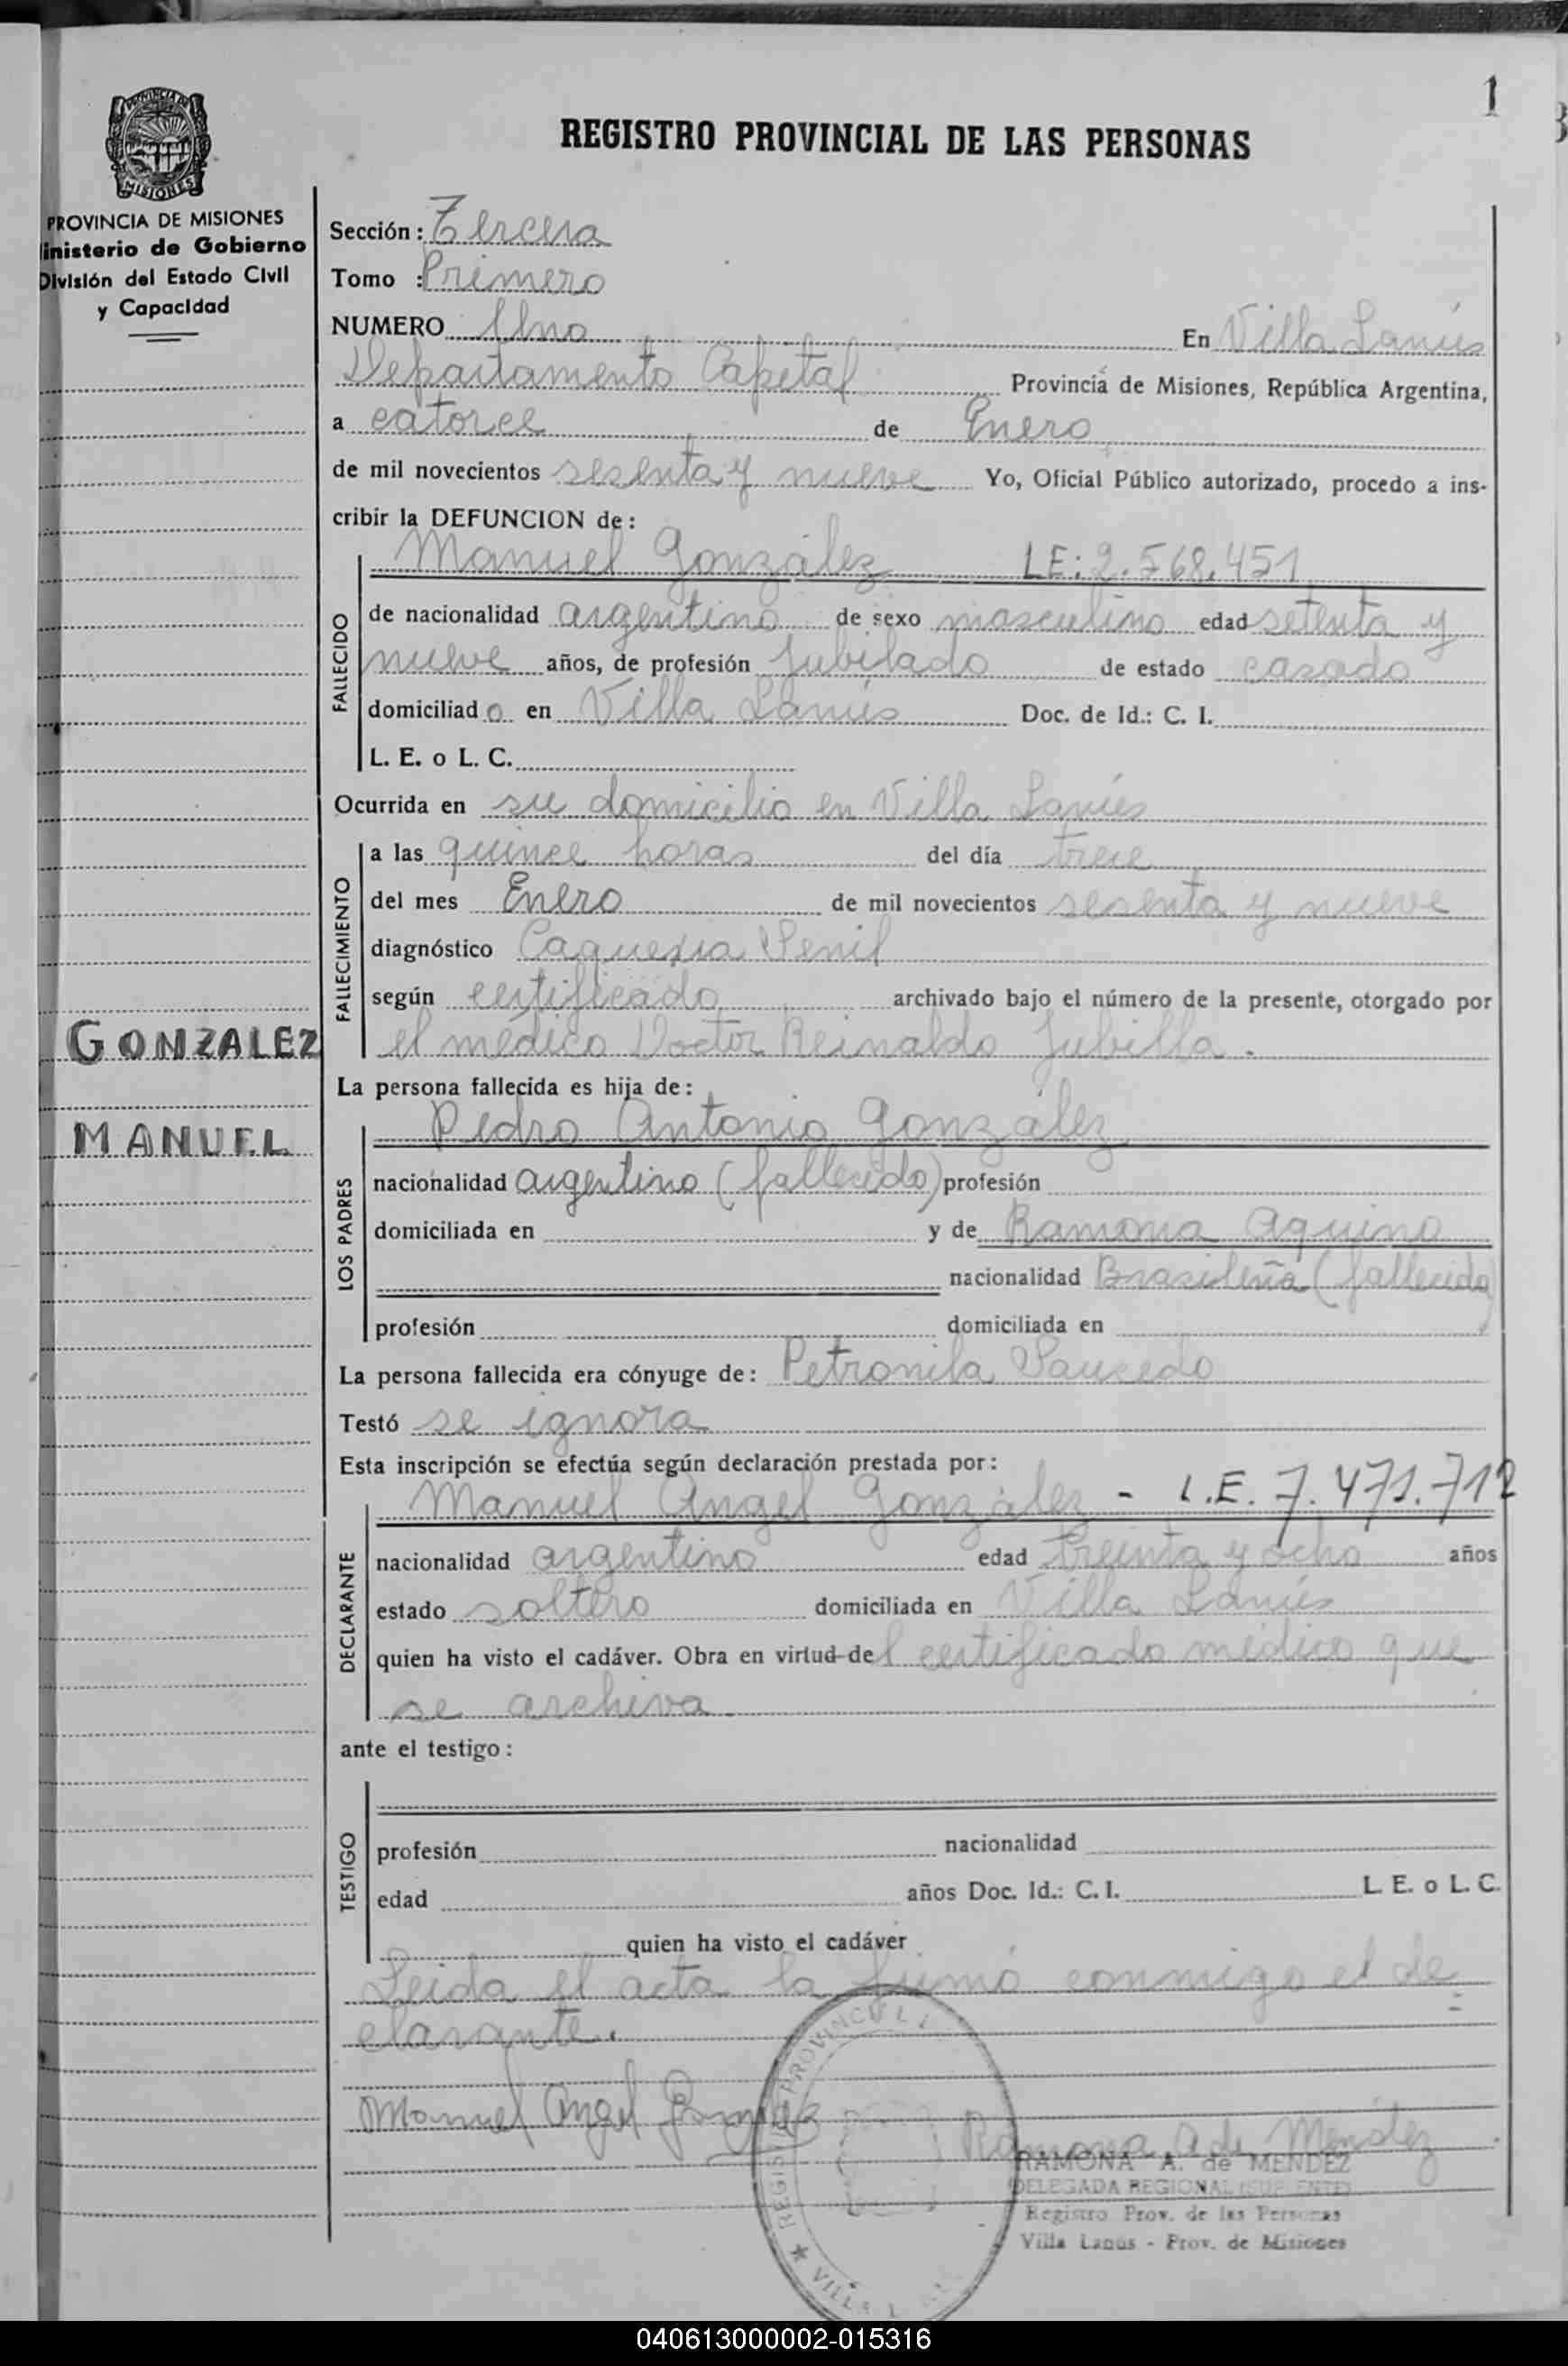 1
REGISTRO PROVINCIAL DE LAS PERSONAS
PROVINCIA DE MISIONES
PROVINCIA DE MISIONES
inisterio de Gobierno
División del Estado Civil
y Capacidad
GONZALEZ
MANUEL
Sección: Tercera
Tomo : Primero
NUMERO Uno En Villa Lanús
Departamento Capital Provincia de Misiones, República Argentina,
a catorce de Enero
de mil novecientos sesenta y nueve Yo, Oficial Público autorizado, procedo a ins-
cribir la DEFUNCION de:
Manuel González LE: 2.568.451
FALLECIDO
de nacionalidad argentino de sexo masculino edad setenta y
nueve años, de profesión Jubilado de estado casado
domiciliad o en Villa Lanús Doc. de Id.: C. I.
L. E. o L. C.
Ocurrida en su domicilio en Villa Lanús
FALLECIMIENTO
a las quince horas del día trece
del mes Enero de mil novecientos sesenta y nueve
diagnóstico Caquexia Senil
según certificado archivado bajo el número de la presente, otorgado por
el médico Doctor Reinaldo Jubilla.
La persona fallecida es hija de:
Pedro Antonio González
LOS PADRES
nacionalidad argentino (fallecido) profesión
domiciliada en y de Ramona Aquino
nacionalidad Brasileña (fallecida)
profesión domiciliada en
La persona fallecida era cónyuge de: Petronila Saucedo
Testó se ignora
Esta inscripción se efectúa según declaración prestada por:
Manuel Angel González - L.E. 7.471.712
DECLARANTE
nacionalidad argentino edad treinta y ocho años
estado soltero domiciliada en Villa Lanús
quien ha visto el cadáver. Obra en virtud del certificado médico que
se archiva
ante el testigo:
TESTIGO
profesión nacionalidad
edad años Doc. Id.: C. I. L. E. o L. C.
quien ha visto el cadáver
Leida el acta la firmó conmigo el de
clarante.
Manuel Angel González
Ramona A. de Mendez
RAMONA A. de MENDEZ
DELEGADA REGIONAL (SUPLENTE)
Registro Prov. de las Personas
Villa Lanús - Prov. de Misiones
040613000002-015316